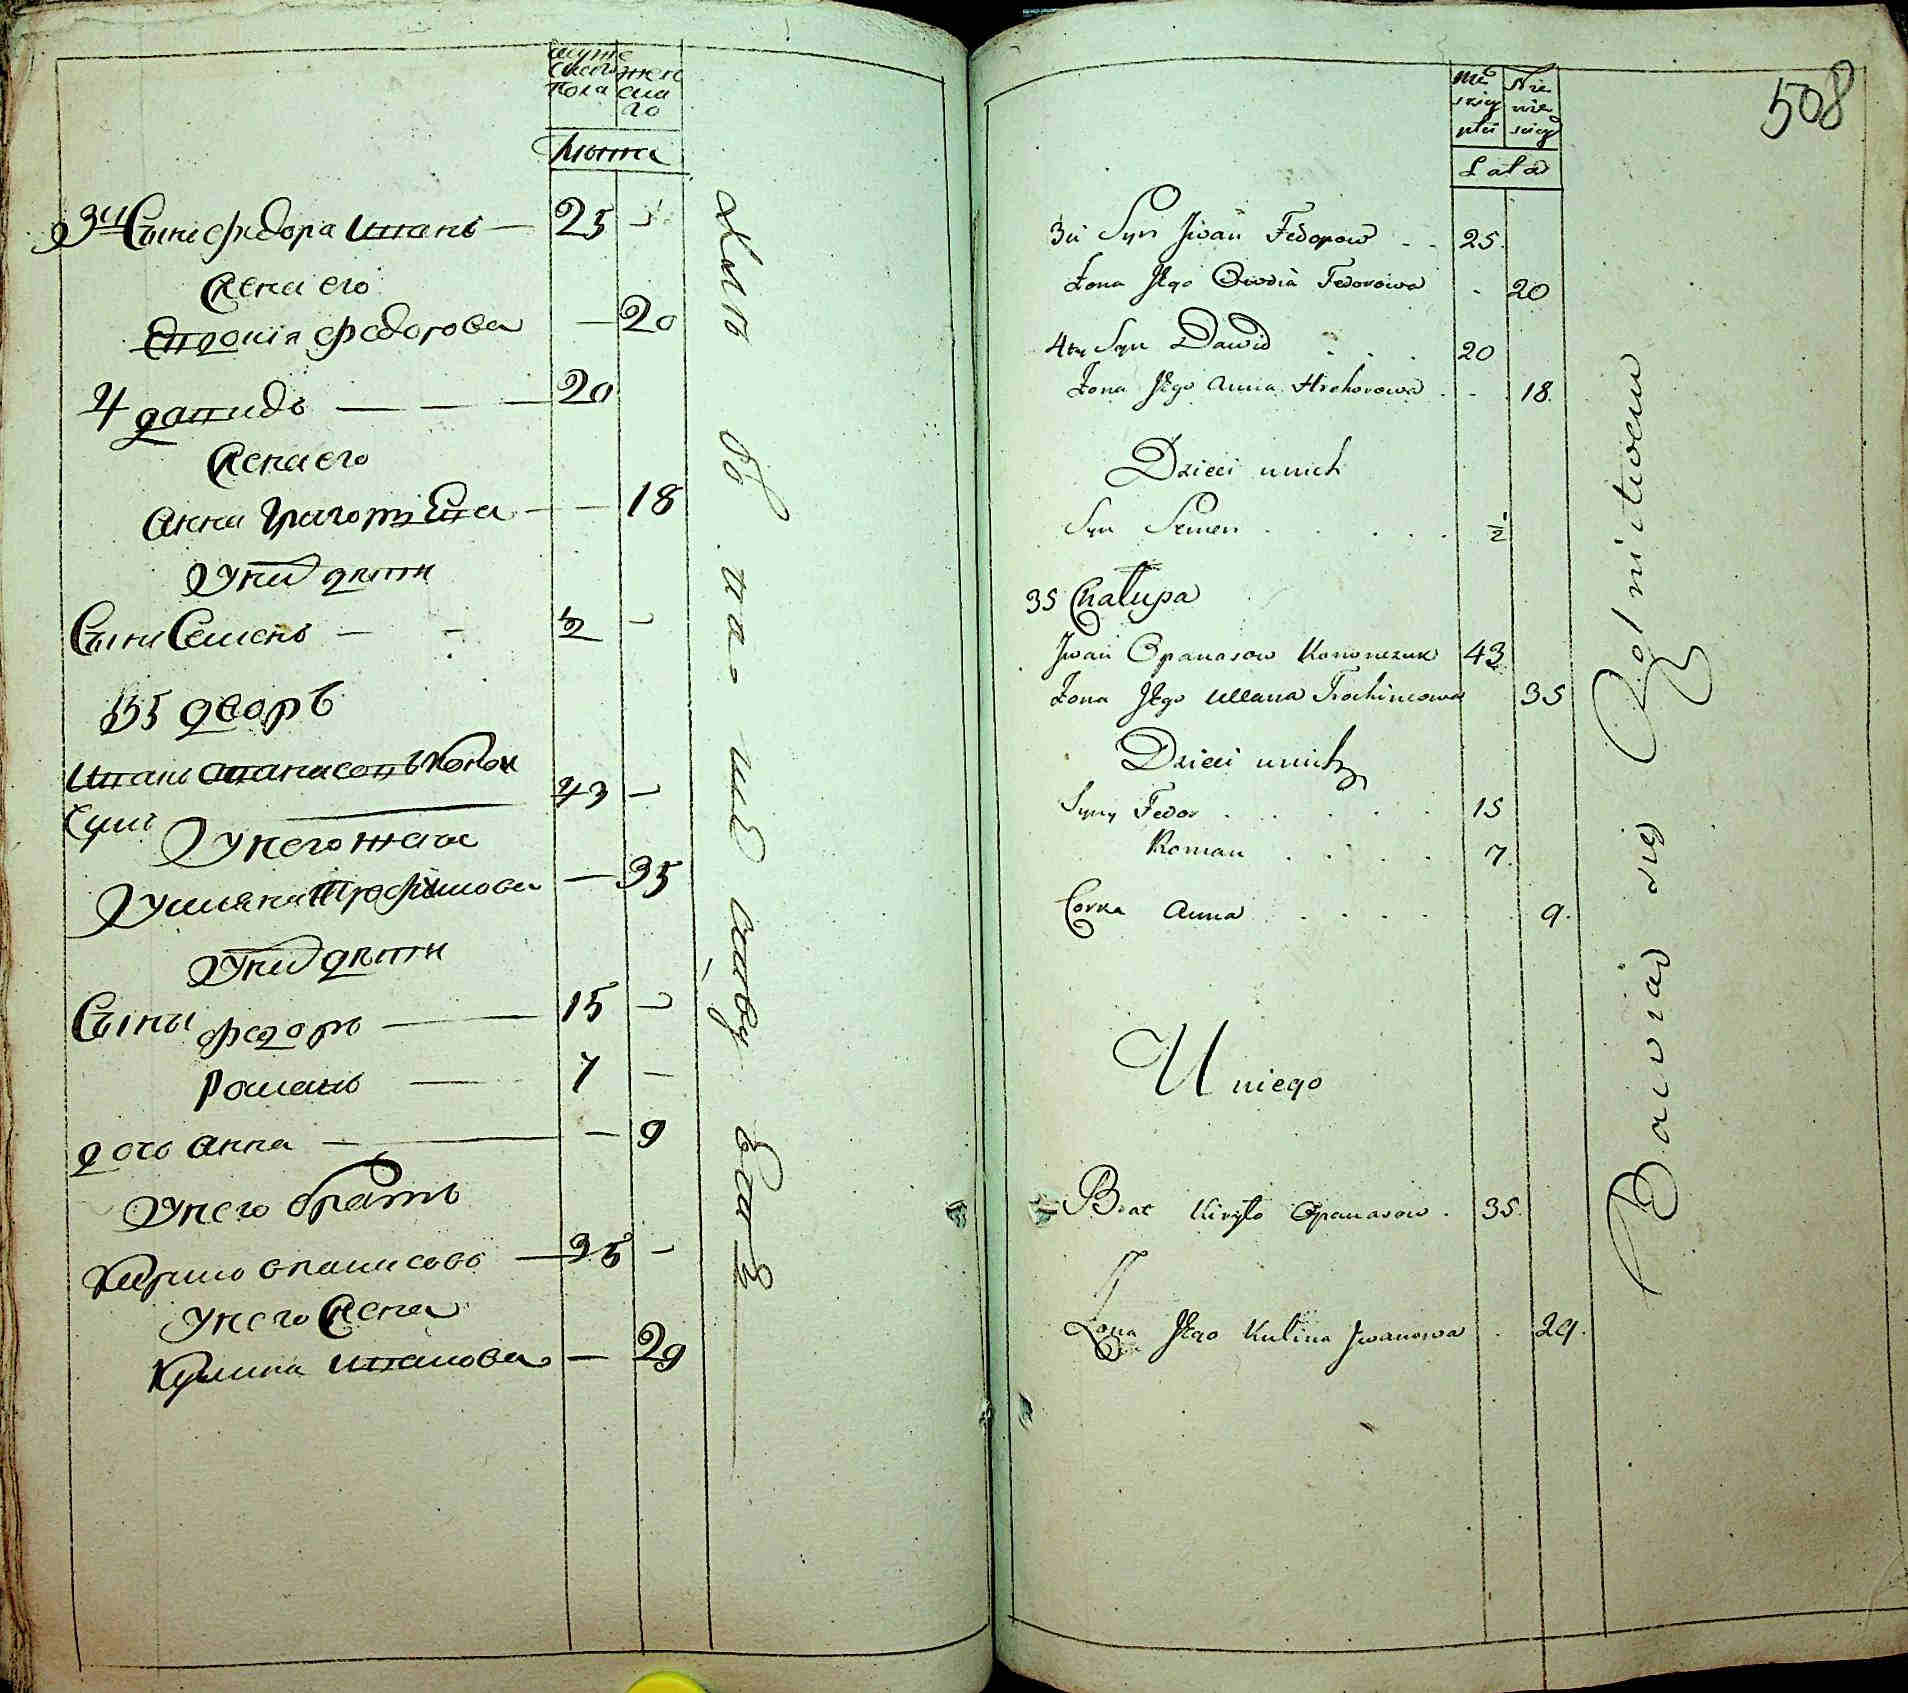 муже
скаго
пола
жен
ска
го
Лѣта
3й Сынъ федора иванъ — 25 —
Жена его
Евдокія федорова — 20
4 давидъ — — — 20
Жена его
анна Григорьева — — 18
У них дѣти
Сынъ Семенъ — - ½ —
35 дворъ
иванъ апанасовъ конон
чукъ 43 —
У него жена
Уляна трофимова — 35
У них дѣти
Сыны федоръ — 15 —
Романъ — 7 —
дочь анна — — 9
У него братъ
Кирило апанасовъ — 35 —
У него Жена
Кулина иванова — 29
508
Mę
skiey
płci
Nie
wie
sciey
Lata
3ci Syn Jwan Fedorow - - 25.
Żona Jego Owdia Fedorowa - 20
4ty Syn Dawid . . . 20
Żona Jego Anna Hrehorowa . - . 18.
Dzieci unich
Syn Semen . . . . . ½
35 Chałupa
Jwan Opanasow Kononczuk 43
Żona Jego Ullana Trochimowa 35
Dzieci unich
Syny Fedor . . . . . 15
Roman . . . . 7.
Corka Anna . . . . . . 9.
U niego
Brat Kiryło Opanasow . 35.
Żona Jego Kulina Jwanowa . 29.
Bawiąd się Rolnitwem